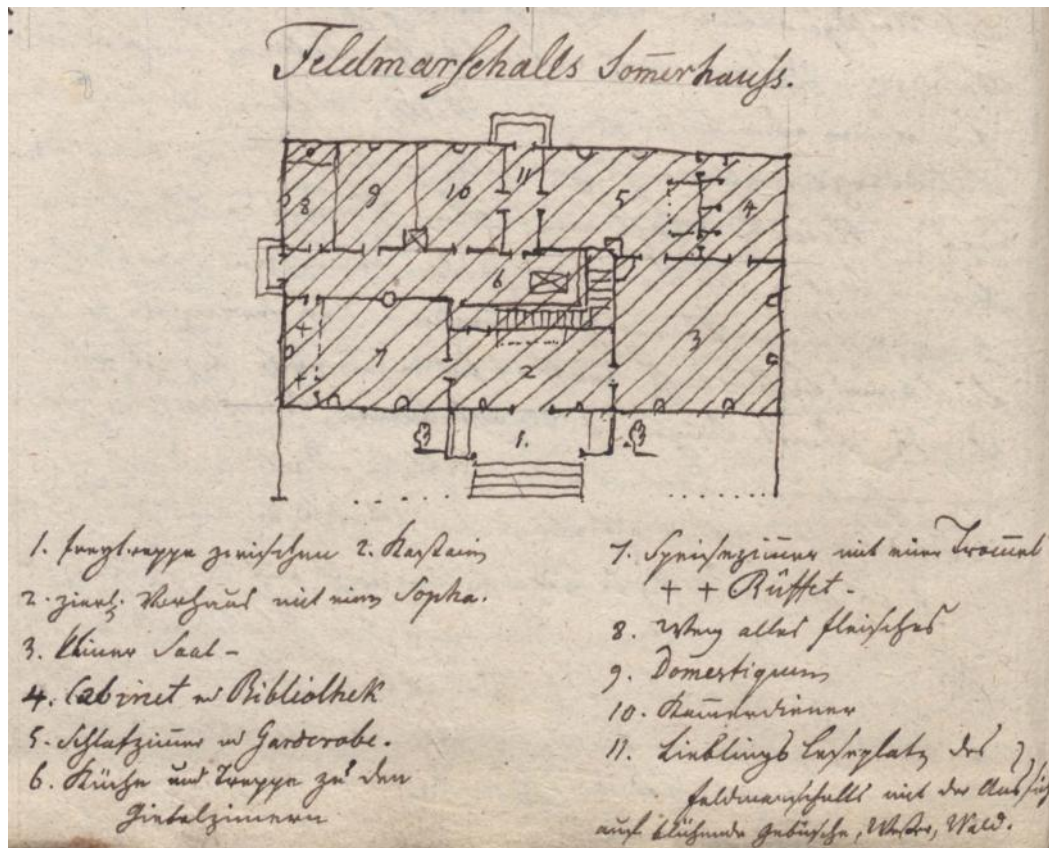 Feldmarschalls Som̅erhauss.
8 9 10 11 5 4
6
7 2 3
1.
1. Freytreppe zwischen 2. Kastain
2. zierl. Vorhaus mit einem Sopha.
3. kleiner Saal -
4. Cabinet u Bibliothek
5. Schlafzim̅er u Garderobe.
6. Küche und Treppe zu den
Giebelzimmern
7. Speisezim̅er mit einer Trom̅el
+ + Büffet -
8. Weg alles Fleisches
9. Domestiquen
10. Kam̅erdiener
11. Lieblings Leseplatz des
Feldmarschalls mit der Aussicht
auf blühende Gebüsche, Wasser, Wald.